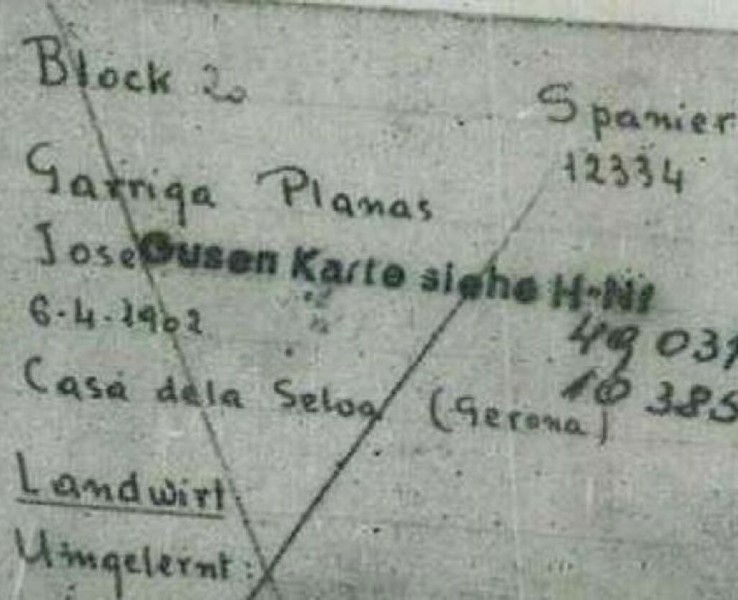 Block 20
Spanier
12334
Garriga Planas
Jose
Gusen Karte siehe H-Nr
6.4.1902
49 031
10 385
Casa dela Selva (Gerona)
Landwirt
Umgelernt: